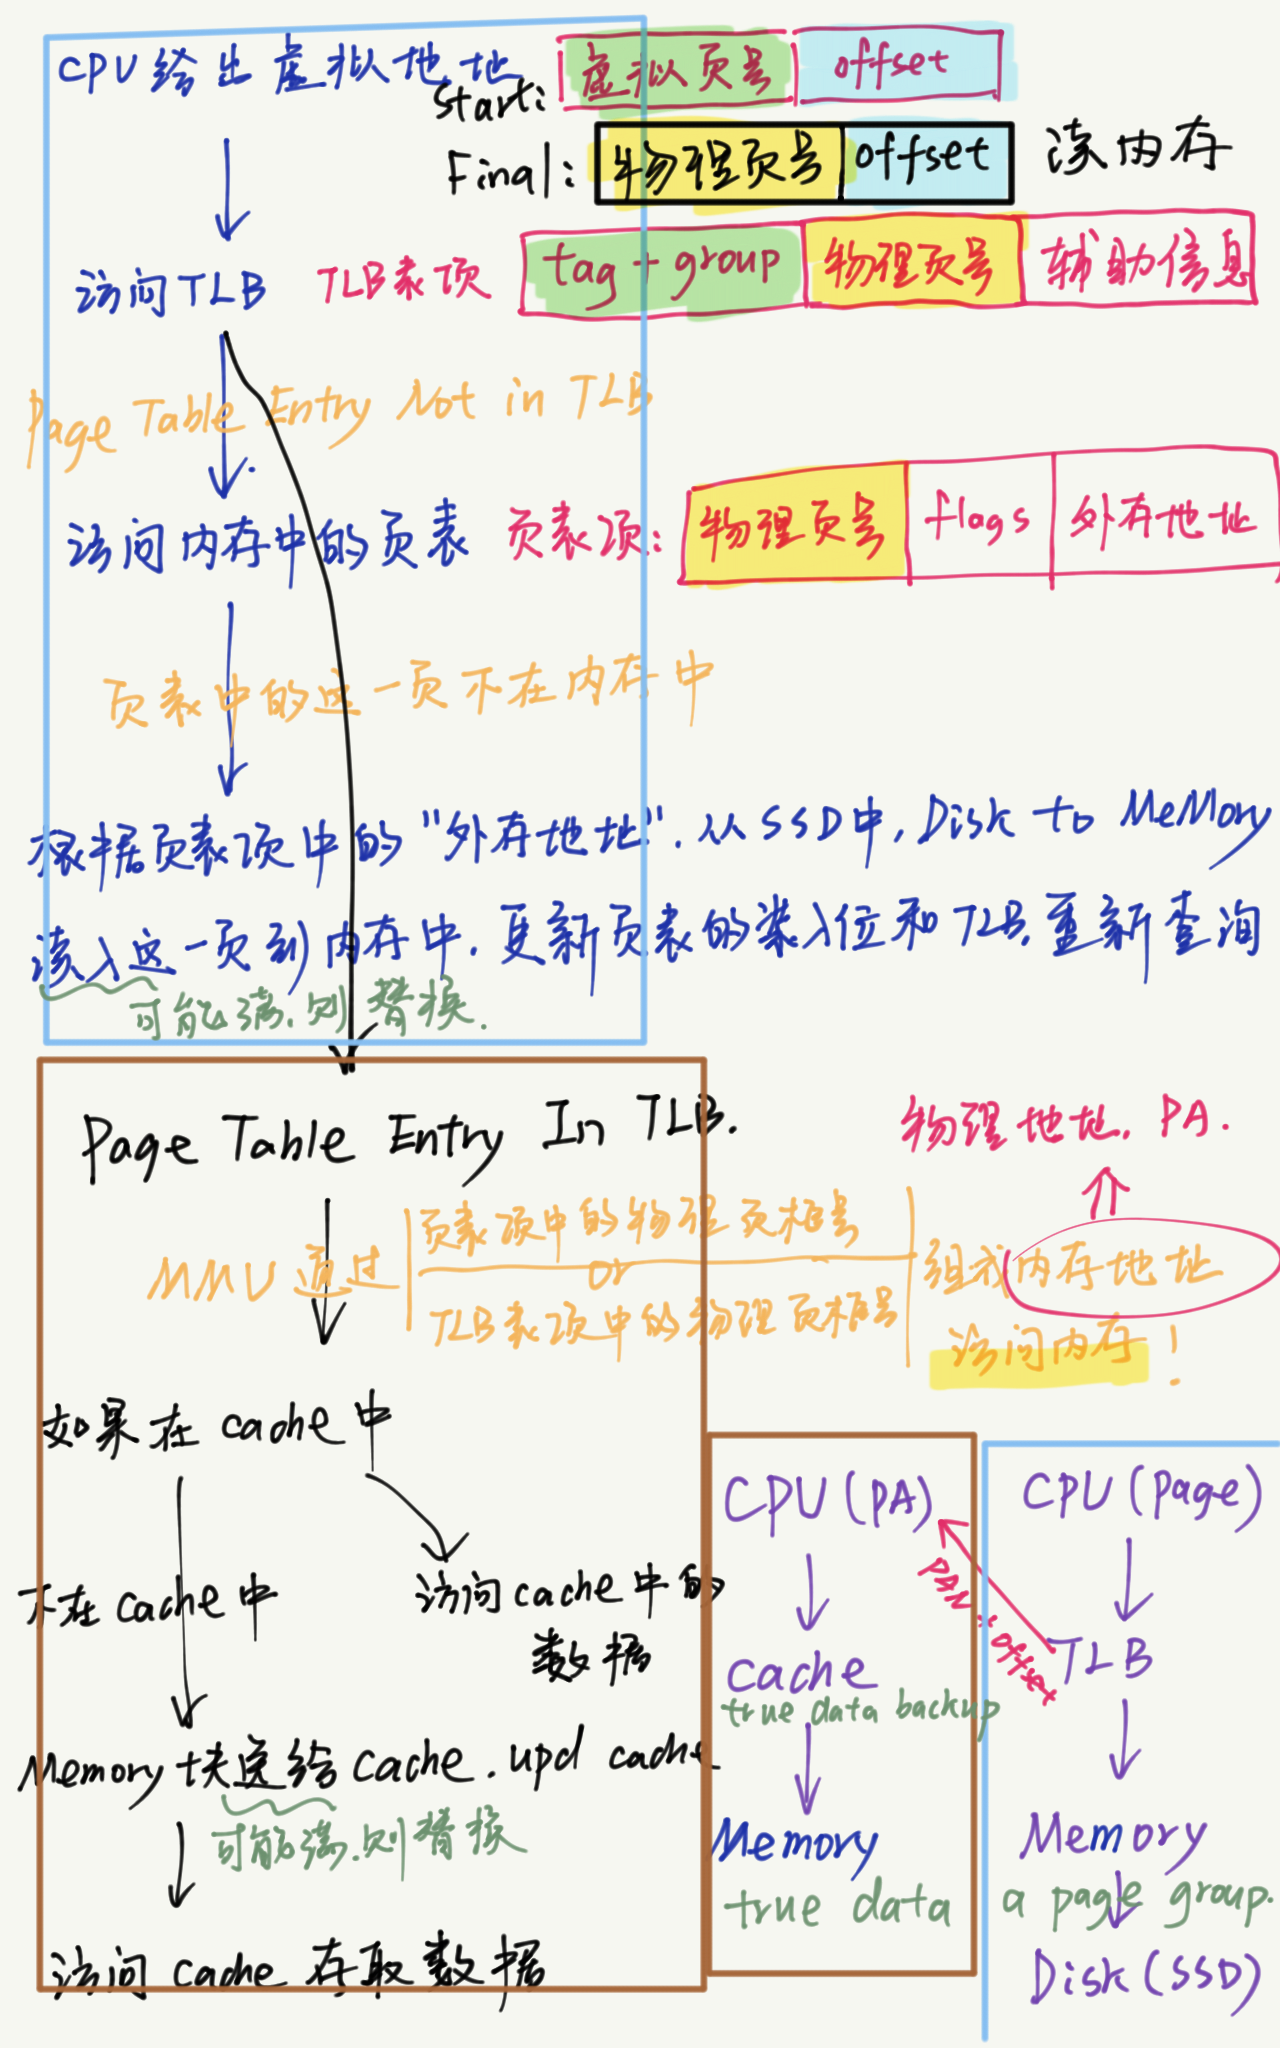 CPU给出虚拟地址
Start: 虚拟页号 offset
Final: 物理页号 offset 读内存
访问TLB TLB表项 tag + group 物理页号 辅助信息
Page Table Entry Not in TLB
访问内存中的页表 页表项: 物理页号 flags 外存地址
页表中的这一页不在内存中
根据页表项中的"外存地址".从SSD中,Disk to MeMory
读入这一页到内存中.更新页表的装入位和TLB.重新查询
可能满.则替换.
Page Table Entry In TLB.
物理地址. PA.
MMU 通过
页表项中的物理页框号
or
TLB表项中的物理页框号
组成内存地址
访问内存!
如果在cache中
不在cache中
访问cache中的
数据
Memory块送给cache.upd cache
可能满.则替换
访问cache存取数据
CPU(PA)
Cache
true data backup
Memory
true data
PAN + offset
CPU(Page)
TLB
Memory
a page group.
Disk(SSD)